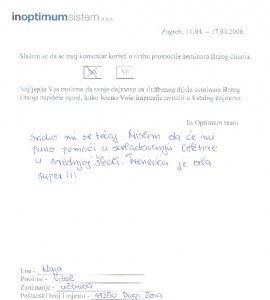 inoptimumsistem d.o.o.
Zagreb, 11.04. – 17.04.2008.
Slažem se da se moj komentar koristi u svrhu promocije seminara Brzog čitanja.
DA NE
Najljepše Vas molimo da svoje dojmove sa održanog dijela seminara Brzog
čitanja zapišete ispod, kako bismo Vaše impresije uvrstili u katalog dojmova.
In Optimum team
Svidio mi se tečaj. Mislim da će mi
puno pomoći u savladavanju lektire
u srednjoj školi. Trenerica je bila
super!!!
Ime -
Prezime -
Zanimanje - učenica
Poštanski broj i mjesto -